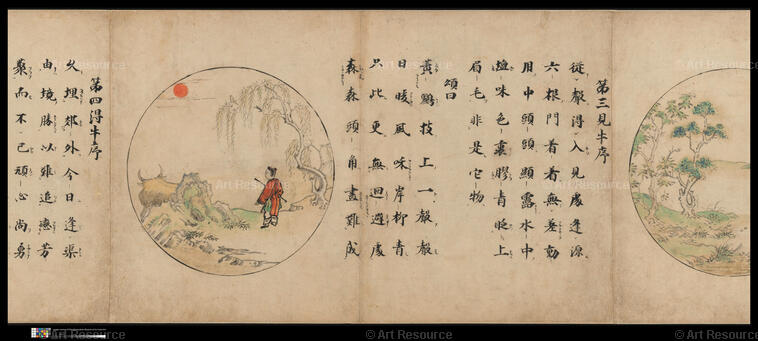 第三見牛序
從聲得入見處逢源
六根門着着無差動
用中頭頭顯露水中
鹽味色裏膠青眨上
眉毛非是它物
頌曰
黃鸝枝上一聲聲
日暖風和岸柳青
只此更無回避處
森森頭角畫難成
第四得牛序
久埋郊外今日逢渠
由境勝以難追戀芳
藂而不已頑心尚勇
© Art Resource
© Art Resource
© Art Resource
© Art Resource
© Art Resource
© Art Resource